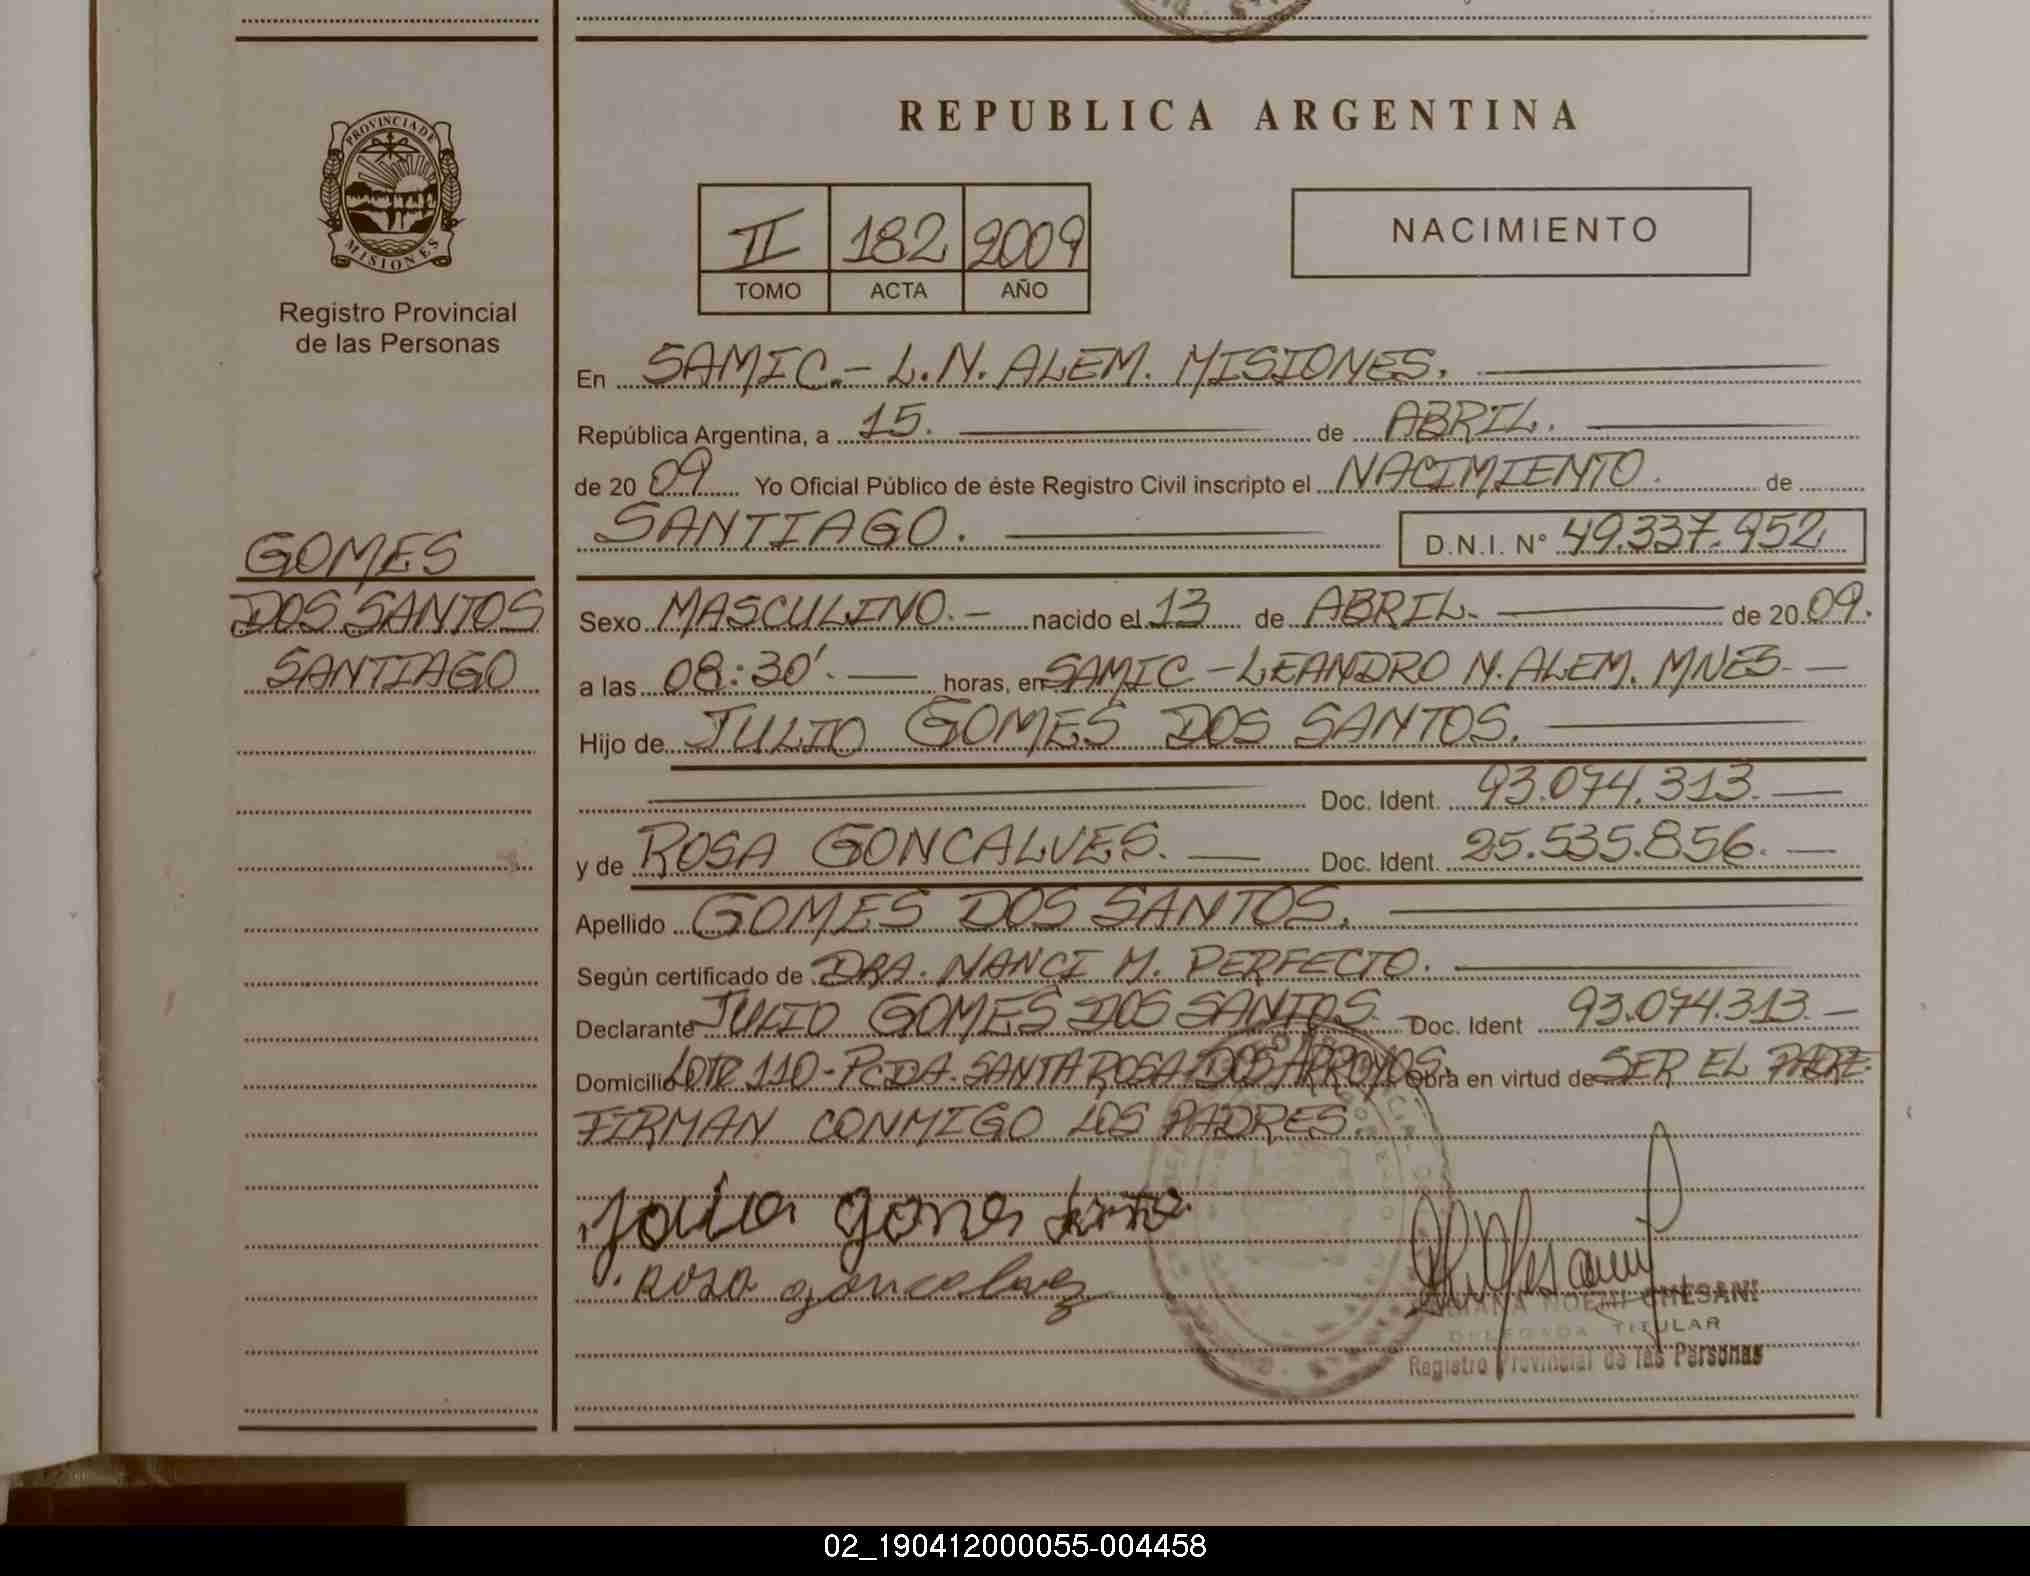 REPUBLICA ARGENTINA
PROVINCIA DE
MISIONES
Registro Provincial
de las Personas
II 182 2009
TOMO ACTA AÑO
NACIMIENTO
En SAMIC.- L.N. ALEM. MISIONES.
República Argentina, a 15. de ABRIL.
de 20 09 Yo Oficial Público de éste Registro Civil inscripto el NACIMIENTO. de
SANTIAGO. D.N.I. N° 49.337.952
GOMES
DOS SANTOS
SANTIAGO
Sexo MASCULINO.- nacido el 13 de ABRIL. de 20 09.
a las 08:30'. horas, en SAMIC - LEANDRO N. ALEM. MNES-
Hijo de JULIO GOMES DOS SANTOS.
Doc. Ident. 93.074.313.
y de ROSA GONCALVES. Doc. Ident. 25.535.856.
Apellido GOMES DOS SANTOS.
Según certificado de DRA. NANCI M. PERFECTO.
Declarante JULIO GOMES DOS SANTOS. Doc. Ident 93.074.313.
Domicilio LOTE 110-PCDA. SANTA ROSA-DOS ARROYOS. Obra en virtud de SER EL PADRE.
FIRMAN CONMIGO LOS PADRES.
rosa goncalvez
NOEMI CHESANI
DELEGADA TITULAR
Registro Provincial de las Personas
02_190412000055-004458